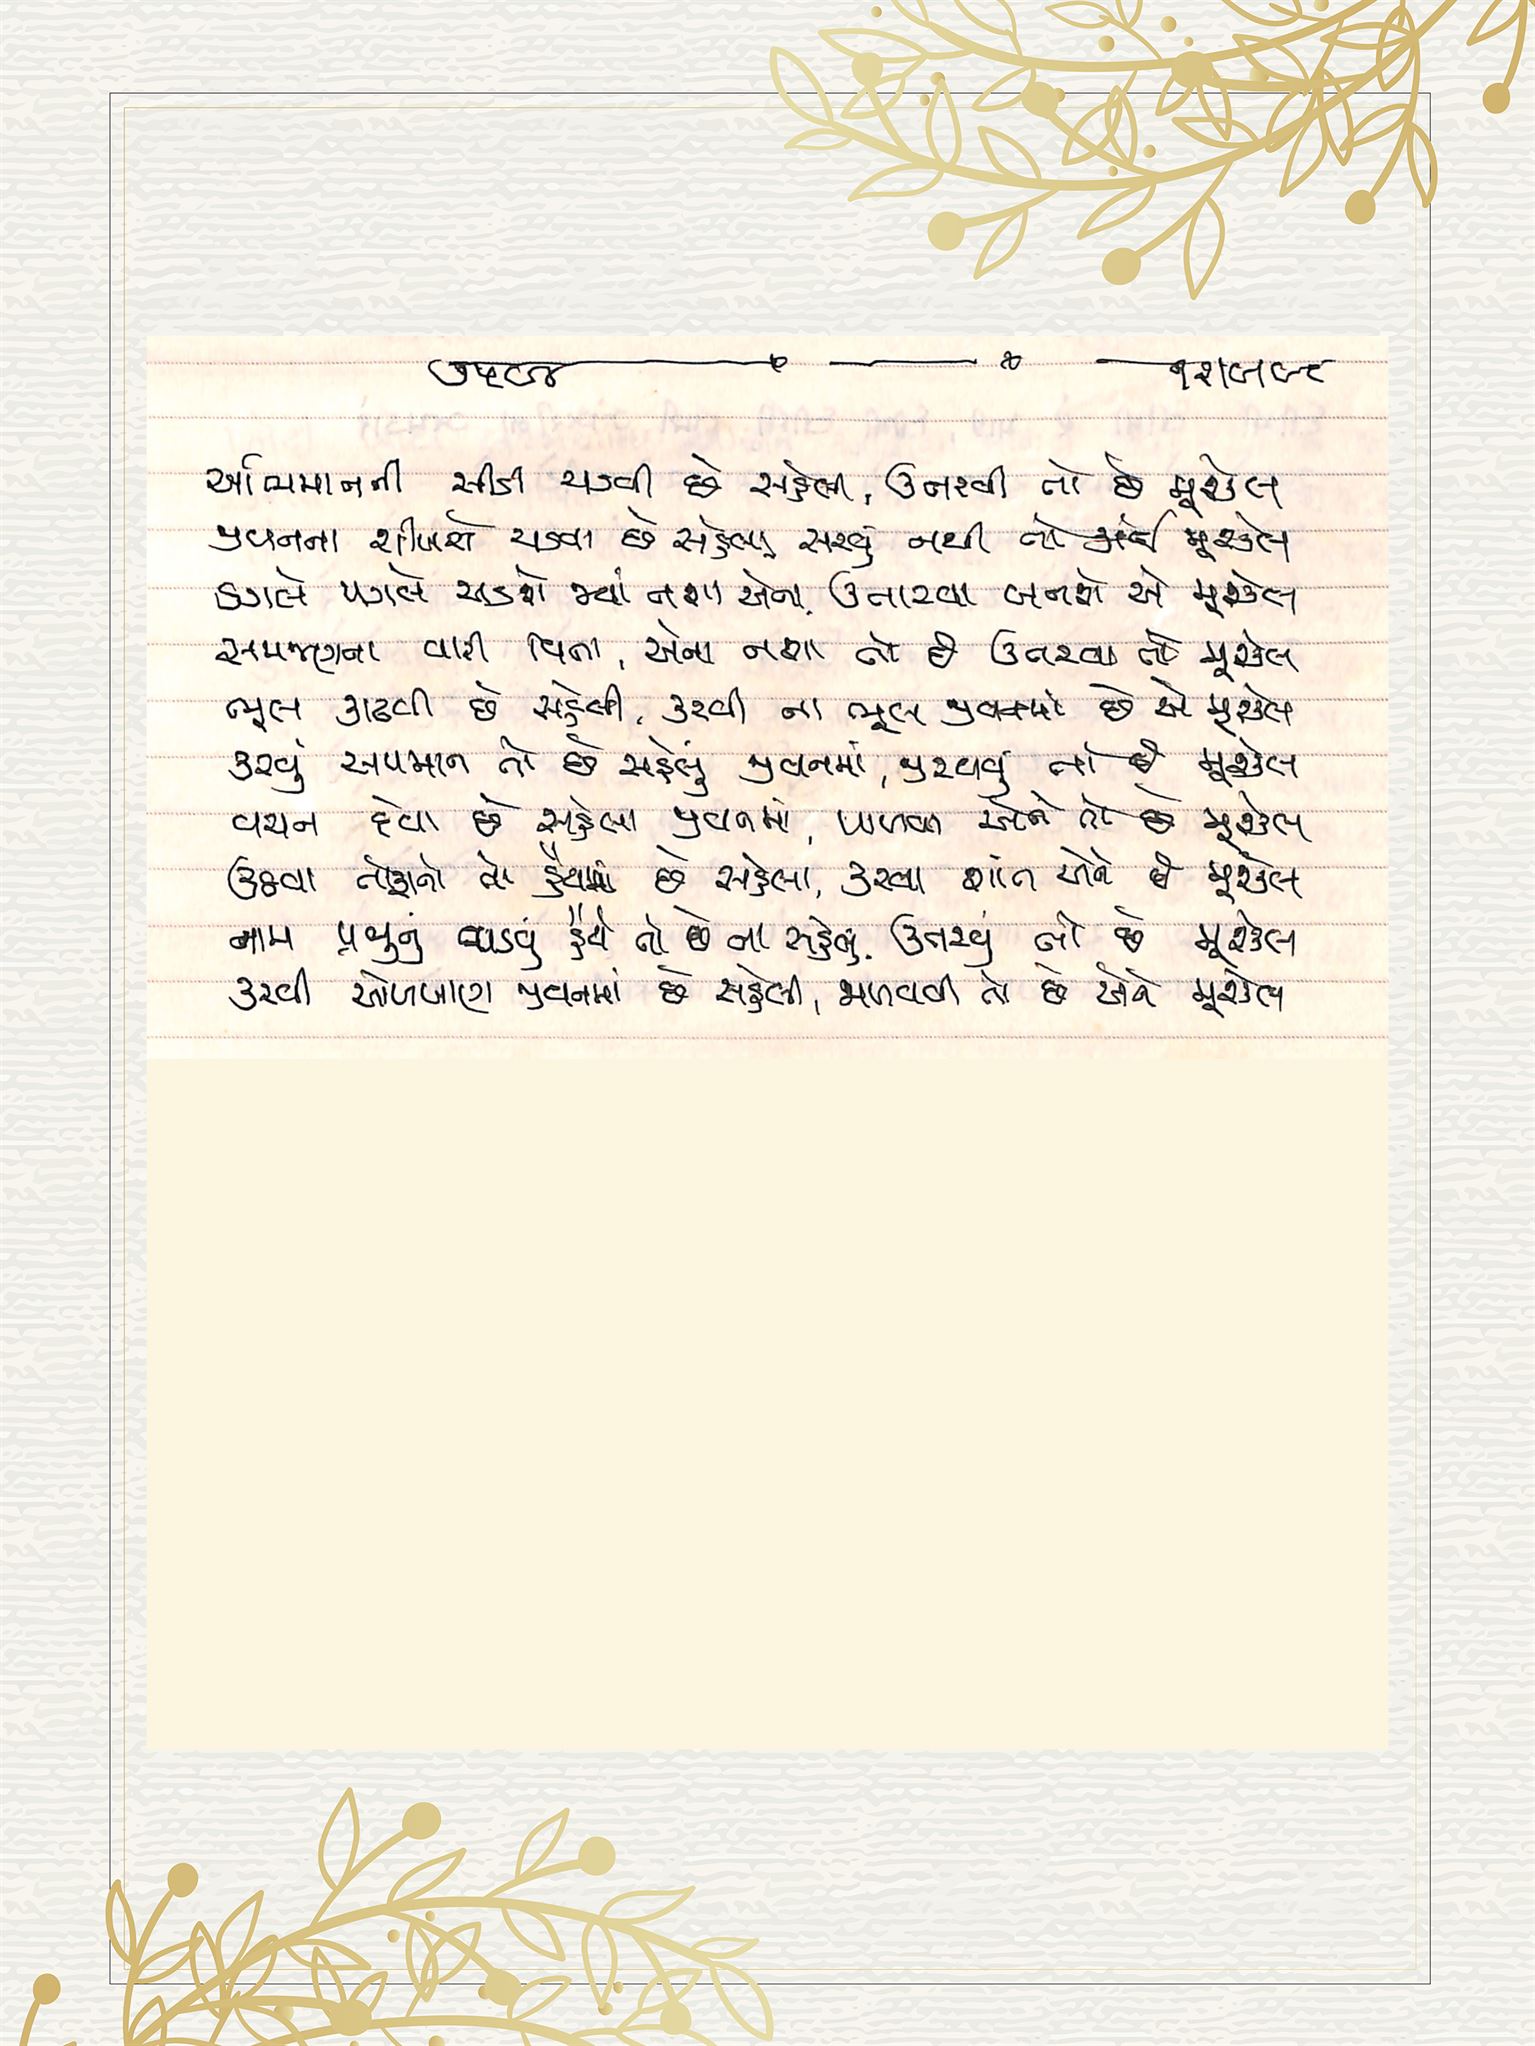 અભિમાનની સીડી ચડવી છે સહેલી, ઉતરવી તો છે મુશ્કેલ
જીવનના શીખરો ચડવા છે સહેલા, સરવું નથી તો કાંઈ મુશ્કેલ
ડગલે પગલે ચડશે જ્યાં નશા એના, ઉતારવા બનશે એ મુશ્કેલ
સમજણના વારી વિના, એના નશા તો છે ઉતરવા તો મુશ્કેલ
ભૂલ કાઢવી છે સહેલી, કરવી ના ભૂલ જીવનમાં છે એ મુશ્કેલ
કરવું અપમાન તો છે સહેલું જીવનમાં, જીરવવું તો છે મુશ્કેલ
વચન દેવા છે સહેલા જીવનમાં, પાળવા એને તો છે મુશ્કેલ
ઉઠવા તોફાનો તો હૈયામાં છે સહેલા, કરવા શાંત એને છે મુશ્કેલ
નામ પ્રભુનું ચડવું હૈયે તો છે ના સહેલું, ઉતરવું તો છે મુશ્કેલ
કરવી ઓળખાણ જીવનમાં છે સહેલી, જાળવવી તો છે એને મુશ્કેલ